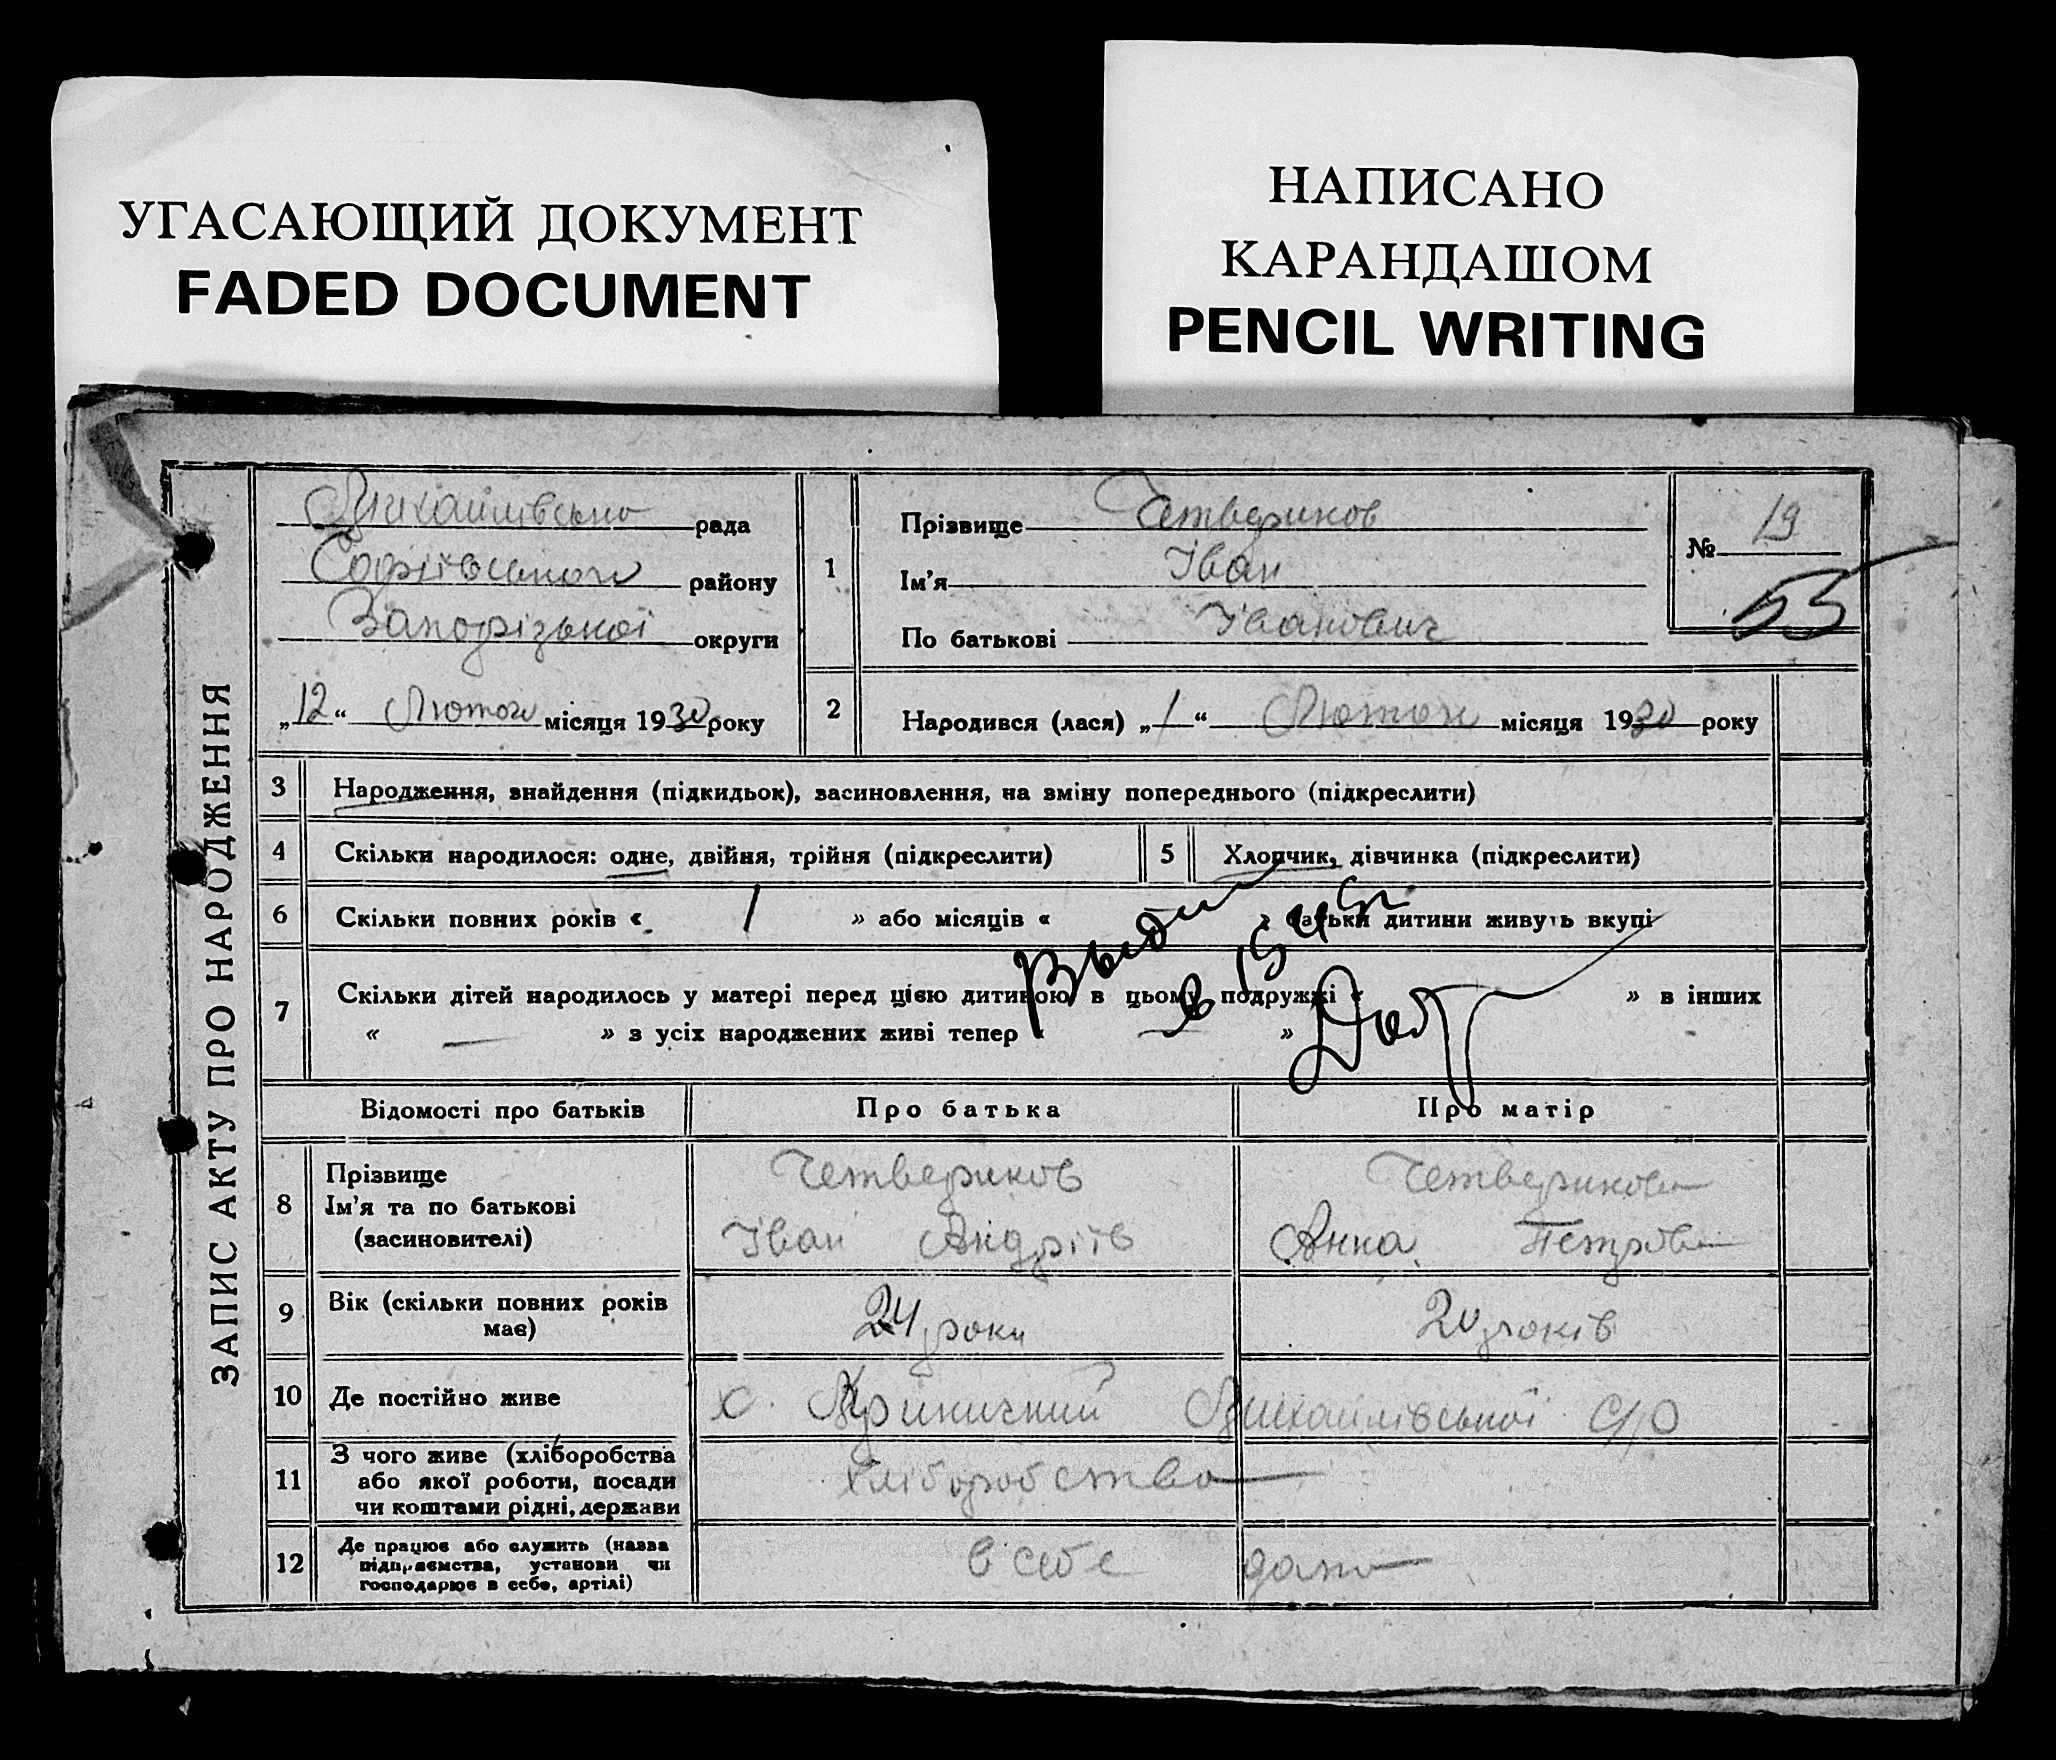 УГАСАЮЩИЙ ДОКУМЕНТ
FADED DOCUMENT
НАПИСАНО
КАРАНДАШОМ
PENCIL WRITING
ЗАПИС АКТУ ПРО НАРОДЖЕННЯ
Михайлівська рада
Софіївського району
Запорізької округи
„12“ Лютого місяця 1930 року
1
Прізвище Четвериков
Ім’я Іван
По батькові Іванович
№ 19
55
2 Народився (лася) „1“ Лютого місяця 1930 року
3 Народження, знайдення (підкидьок), засиновлення, на зміну попереднього (підкреслити)
4 Скільки народилося: одне, двійня, трійня (підкреслити)
5 Хлопчик, дівчинка (підкреслити)
6 Скільки повних років « 1 » або місяців « » батьки дитини живуть вкупі
7 Скільки дітей народилось у матері перед цією дитиною в цьому подружжі « » в інших
« — » з усіх народжених живі тепер « — »
Відомості про батьків Про батька Про матір
8 Прізвище
Ім’я та по батькові
(засиновителі)
Четвериков
Іван Андріїв
Четверикова
Анна Петрівна
9 Вік (скільки повних років
має)
24 роки
20 років
10 Де постійно живе х. Криничний Михайлівської С/р
11 З чого живе (хліборобства
або якої роботи, посади
чи коштами рідні, держави
хліборобства
12 Де працює або служить (назва
підприємства, установи чи
господарює в себе, артілі)
в себе дома